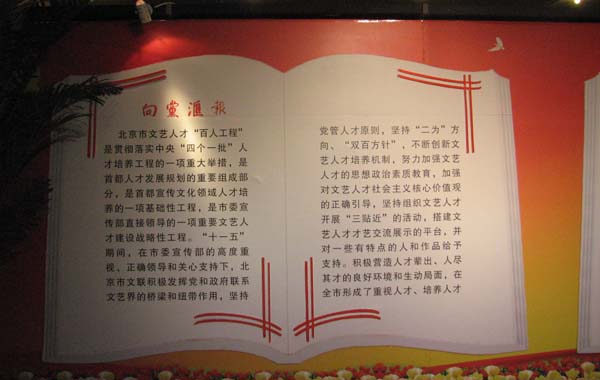 向黨滙報
北京市文艺人才“百人工程”
是贯彻落实中央“四个一批”人
才培养工程的一项重大举措，是
首都人才发展规划的重要组成部
分，是首都宣传文化领域人才培
养的一项基础性工程，是市委宣
传部直接领导的一项重要文艺人
才建设战略性工程。“十一五”
期间，在市委宣传部的高度重
视、正确领导和关心支持下，北
京市文联积极发挥党和政府联系
文艺界的桥梁和纽带作用，坚持
党管人才原则，坚持“二为”方
向、“双百方针”，不断创新文
艺人才培养机制，努力加强文艺
人才的思想政治素质教育，加强
对文艺人才社会主义核心价值观
的正确引导，坚持组织文艺人才
开展“三贴近”的活动，搭建文
艺人才才艺交流展示的平台，并
对一些有特点的人和作品给予
支持。积极营造人才辈出、人尽
其才的良好环境和生动局面，在
全市形成了重视人才、培养人才